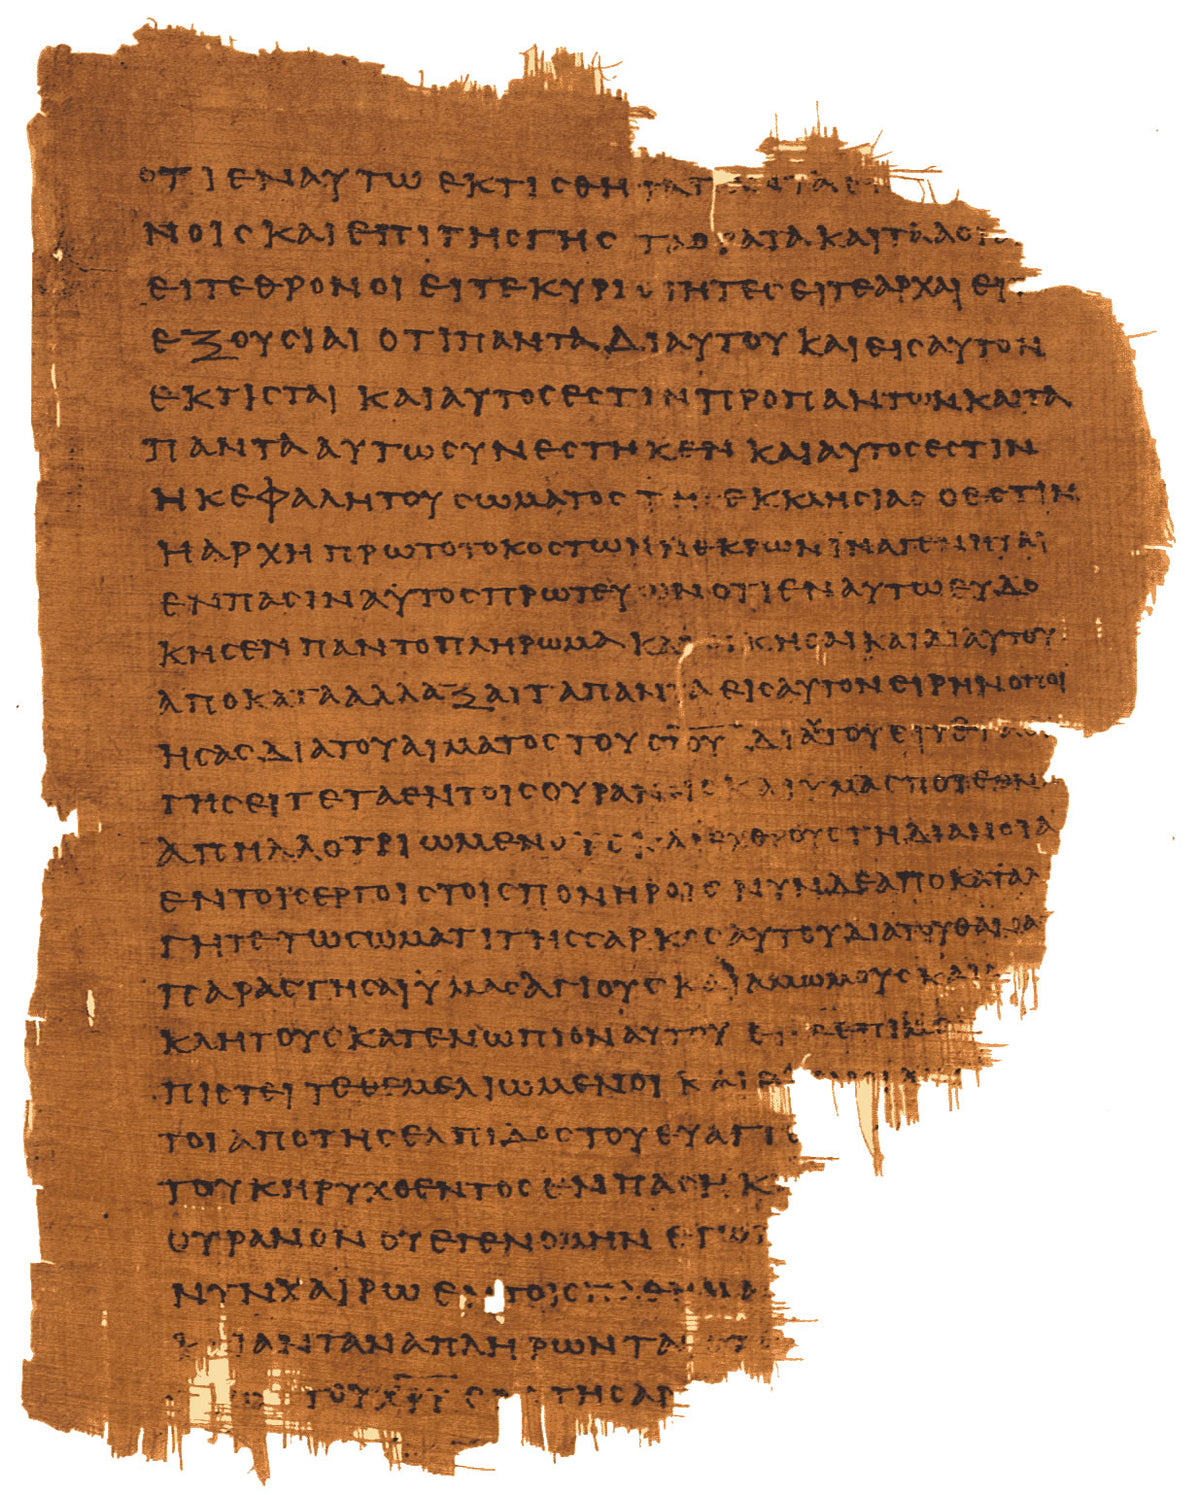 ΟΤΙ ΕΝ ΑΥΤΩ ΕΚΤΙCΘΗ
ΝΟΙC ΚΑΙ ΕΠΙ ΤΗC ΓΗC ΤΑ ΟΡΑΤΑ ΚΑΙ ΤΑ ΑΟΡ
ΕΙΤΕ ΘΡΟΝΟΙ ΕΙΤΕ ΚΥΡΙΟΤΗΤΕC ΕΙΤΕ ΑΡΧΑΙ ΕΙ
ΕΞΟΥCΙΑΙ ΟΤΙ ΠΑΝΤΑ ΔΙ ΑΥΤΟΥ ΚΑΙ ΕΙC ΑΥΤΟΝ
ΕΚΤΙCΤΑΙ ΚΑΙ ΑΥΤΟC ΕCΤΙΝ ΠΡΟ ΠΑΝΤΩΝ ΚΑΙ ΤΑ
ΠΑΝΤΑ ΑΥΤΩ CΥΝΕCΤΗΚΕΝ ΚΑΙ ΑΥΤΟC ΕCΤΙΝ
Η ΚΕΦΑΛΗ ΤΟΥ CΩΜΑΤΟC ΤΗC ΕΚΚΛΗCΙΑC Ο ΕCΤΙΝ
Η ΑΡΧΗ ΠΡΩΤΟΤΟΚΟC ΤΩΝ ΝΕΚΡΩΝ ΙΝΑ ΓΕΝΗΤΑΙ
ΕΝ ΠΑCΙΝ ΑΥΤΟC ΠΡΩΤΕΥΩΝ ΟΤΙ ΕΝ ΑΥΤΩ ΕΥΔΟ
ΚΗCΕΝ ΠΑΝ ΤΟ ΠΛΗΡΩΜΑ ΚΑΤΟΙΚΗCΑΙ ΚΑΙ ΔΙ ΑΥΤΟΥ
ΑΠΟΚΑΤΑΑΛΛΑΞΑΙ ΤΑ ΠΑΝΤΑ ΕΙC ΑΥΤΟΝ ΕΙΡΗΝΟΠΟΙ
ΗCΑC ΔΙΑ ΤΟΥ ΑΙΜΑΤΟC ΤΟΥ CΤΟΥ ΔΙ ΑΥΤΟΥ ΕΙΤΕ ΤΑ
ΓΗC ΕΙΤΕ ΤΑ ΕΝ ΤΟΙC ΟΥΡΑΝΟΙC ΚΑΙ ΥΜΑC ΠΟΤΕ ΟΝ
ΑΠΗΛΛΟΤΡΙΩΜΕΝΟΥC ΚΑΙ ΕΧΘΡΟΥC ΤΗ ΔΙΑΝΟΙΑ
ΕΝ ΤΟΙC ΕΡΓΟΙC ΤΟΙC ΠΟΝΗΡΟΙC ΝΥΝ ΔΕ ΑΠΟΚΑΤΑΛ
ΓΗΤΕ ΤΩ CΩΜΑΤΙ ΤΗC CΑΡΚΟC ΑΥΤΟΥ ΔΙΑ ΤΟΥ ΘΑΝΑ
ΠΑΡΑCΤΗCΑΙ ΥΜΑC ΑΓΙΟΥC ΚΑΙ ΑΜΩΜΟΥC ΚΑΙ
ΚΛΗΤΟΥC ΚΑΤΕΝΩΠΙΟΝ ΑΥΤΟΥ ΕΠΙΜΕ
ΠΙCΤΕΙ ΤΕΘΕΜΕΛΙΩΜΕΝΟΙ ΚΑΙ
ΤΟΙ ΑΠΟ ΤΗC ΕΛΠΙΔΟC ΤΟΥ ΕΥΑΓΓ
ΤΟΥ ΚΗΡΥΧΘΕΝΤΟC ΕΝ ΠΑCΗ Κ
ΟΥΡΑΝΟΝ ΟΥ ΕΓΕΝΟΜΗΝ ΕΓΩ
ΝΥΝ ΧΑΙΡΩ ΕΝ ΤΟΙC ΠΑΘΗΜΑ
ΚΑΙ ΑΝΤΑΝΑΠΛΗΡΩ ΝΤΑ
ΤΟΥ ΧΡΥ ΤΗ CΑΡ